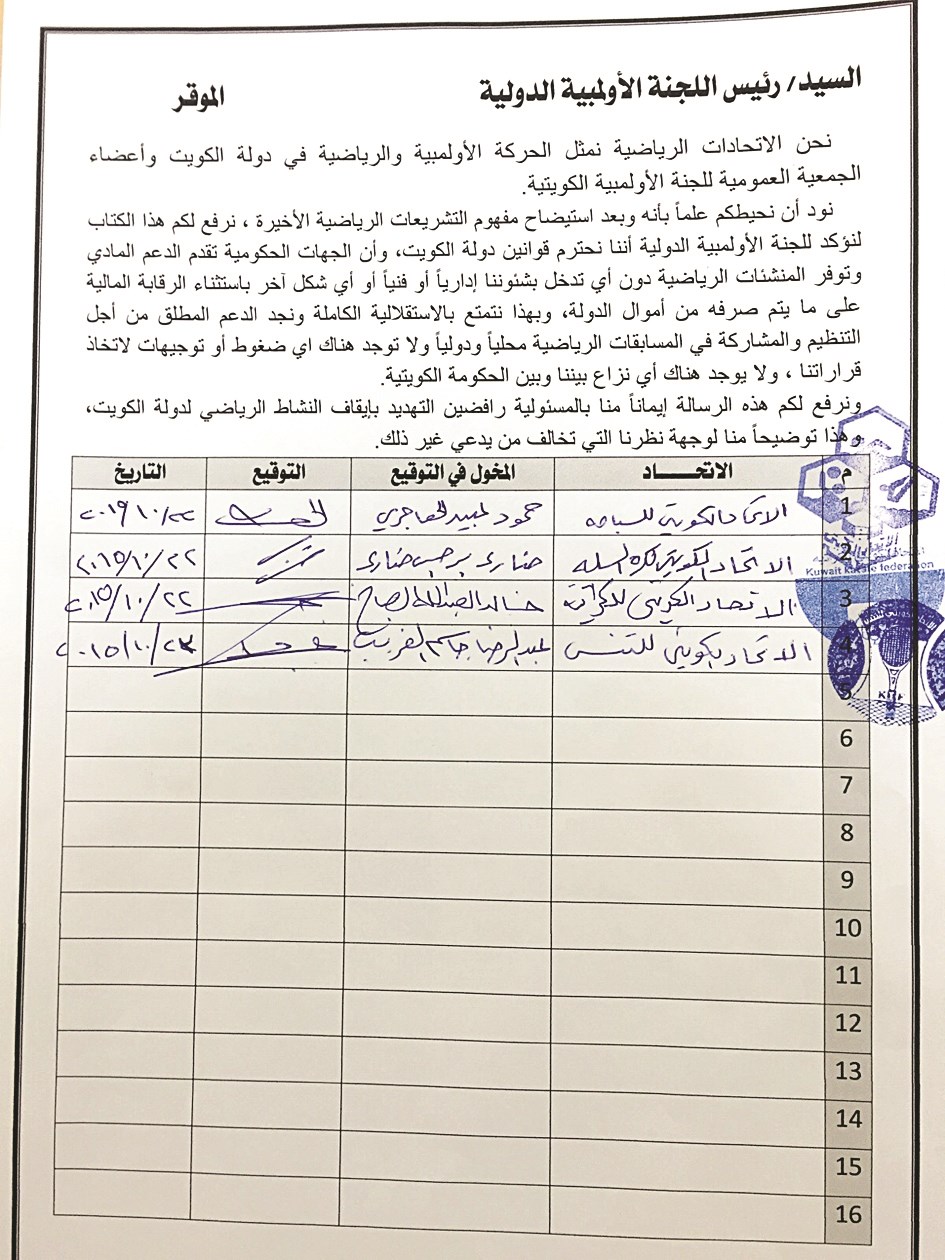 السيد/ رئيس اللجنة الأولمبية الدولية الموقر
نحن الاتحادات الرياضية نمثل الحركة الأولمبية والرياضية في دولة الكويت وأعضاء
الجمعية العمومية للجنة الأولمبية الكويتية.
نود أن نحيطكم علماً بأنه وبعد استيضاح مفهوم التشريعات الرياضية الأخيرة ، نرفع لكم هذا الكتاب
لنؤكد للجنة الأولمبية الدولية أننا نحترم قوانين دولة الكويت، وأن الجهات الحكومية تقدم الدعم المادي
وتوفر المنشئات الرياضية دون أي تدخل بشئوننا إدارياً أو فنياً أو أي شكل آخر باستثناء الرقابة المالية
على ما يتم صرفه من أموال الدولة، وبهذا نتمتع بالإستقلالية الكاملة ونجد الدعم المطلق من أجل
التنظيم والمشاركة في المسابقات الرياضية محلياً ودولياً ولا توجد هناك اي ضغوط أو توجيهات لاتخاذ
قراراتنا ، ولا يوجد هناك أي نزاع بيننا وبين الحكومة الكويتية.
ونرفع لكم هذه الرسالة إيماناً منا بالمسئولية رافضين التهديد بإيقاف النشاط الرياضي لدولة الكويت،
وهذا توضيحاً منا لوجهة نظرنا التي تخالف من يدعي غير ذلك.
م الاتحـــــاد المخول في التوقيع التوقيع التاريخ
1 الاتحاد الكويتي للسباحه
2 الاتحاد الكويتي لكرة السله ٢٠١٥/١٠/٢٢
Kuwait karate federation
3 الاتحاد الكويتي للكراتيه خالد العبدالله الصباح ٢٠١٥/١٠/٢٢
4 الاتحاد الكويتي للتنس عبدالرضا جاسم الغريب ٢٠١٥/١٠/٢٣
5
6
7
8
9
10
11
12
13
14
15
16